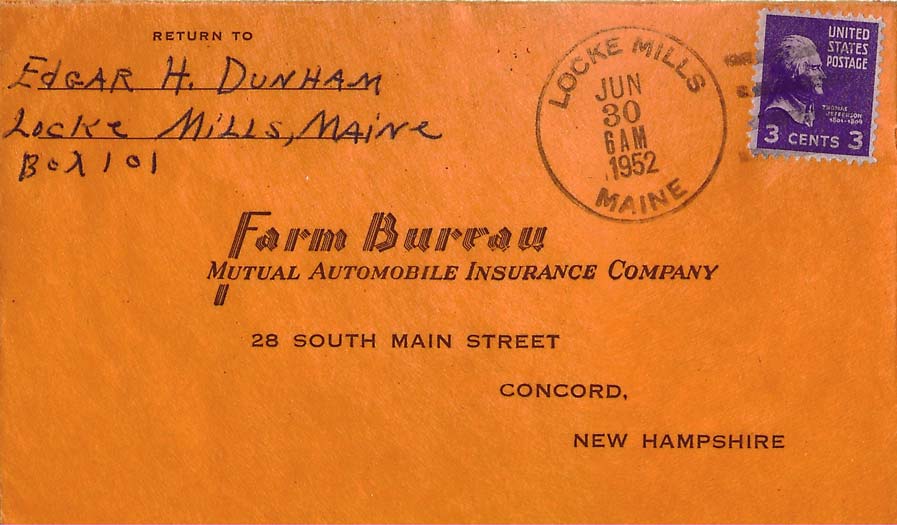 RETURN TO
EDGAR H. DUNHAM
LOCKE MILLS, MAINE
BOX 101
LOCKE MILLS
JUN
30
6 AM
1952
MAINE
UNITED
STATES
POSTAGE
THOMAS
JEFFERSON
1801-1809
3 CENTS 3
Farm Bureau
MUTUAL AUTOMOBILE INSURANCE COMPANY
28 SOUTH MAIN STREET
CONCORD,
NEW HAMPSHIRE